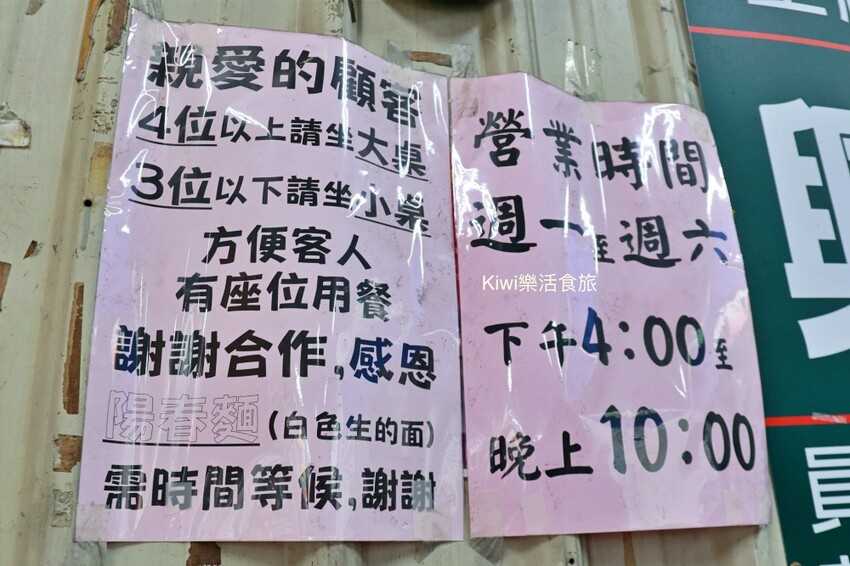 親愛的顧客
4位以上請坐大桌
3位以下請坐小桌
方便客人
有座位用餐
謝謝合作,感恩
陽春麵(白色生的面)
需時間等候,謝謝
營業時間
週一至週六
Kiwi樂活食旅
下午4:00至
晚上10:00
員